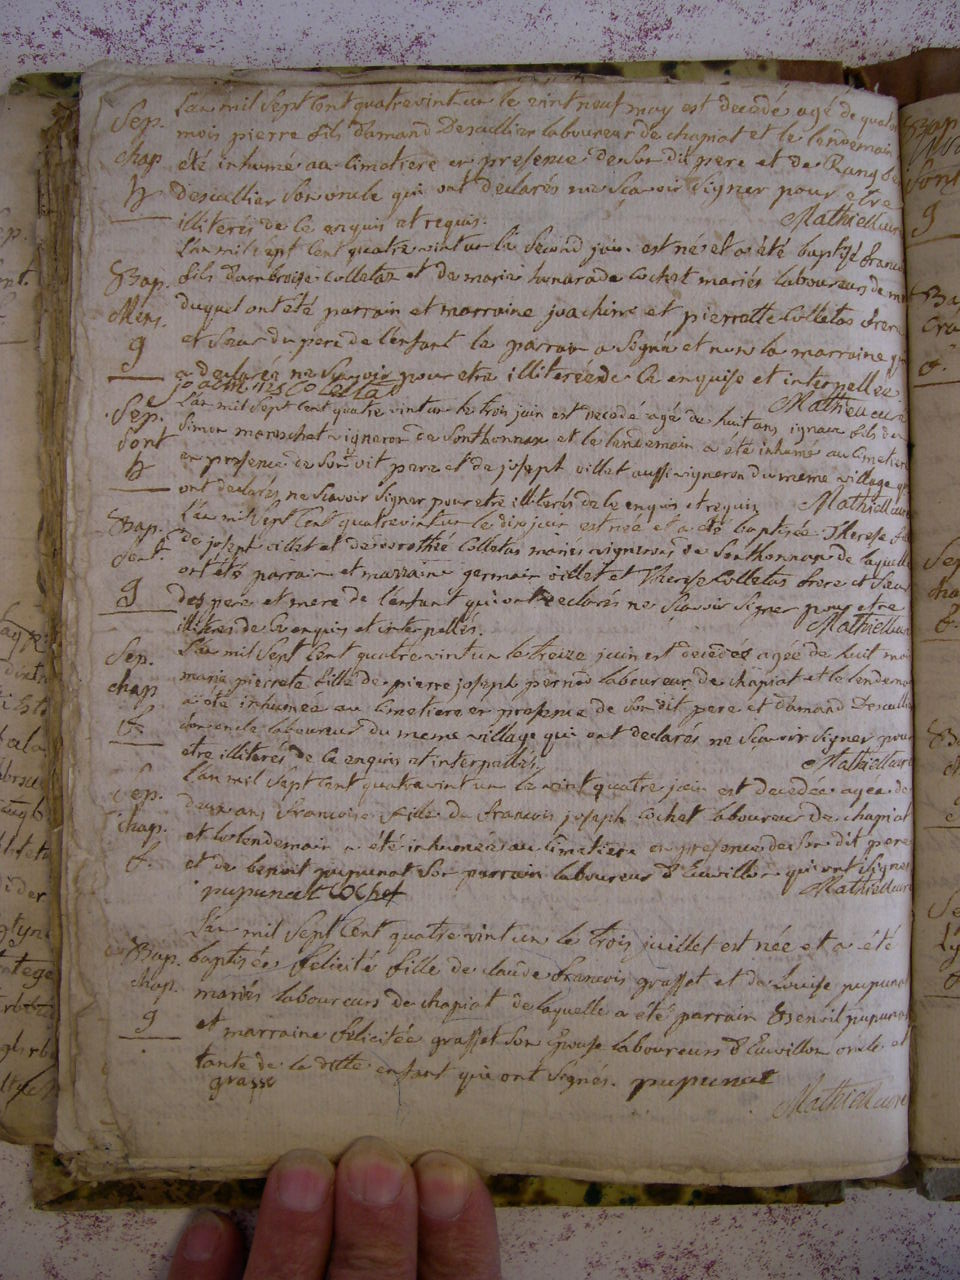 Sep. L'an mil sept cent quatrevint un le vint neuf may est decedé agé de quatre
chap mois pierre fils d'amand Descullier laboureur de chapiat et le lendemain
été inhumé au cimetiere en presence de son dit pere et de
descullier son oncle qui ont declarés ne scavoir signer pour etre
illiterés de ce enquis et requis. Mathieu curé
L'an mil sept cent quatre vint un le second juin est né et a été baptisé
Bap. fils d'ambroise Colletas et de marie honorade Cochet mariés laboureurs de
duquel ont été parrain et marraine joachim et pierrette Colletas frere
9 et soeur du pere de l'enfant le parrain a signé et non la marraine
a declarée ne scavoir pour etre illitereé de ce enquise et interpellee
Mathieu curé
Sep. L'an mil sept cent quatre vint un le trois juin est decedé agé de huit ans ignace fils de
Sont Simon mareschet vigneron de Sonthonnax et le lendemain a été inhumé au cimetiere
en presence de son dit pere et de joseph villet aussi vigneron du meme village
ont declarés ne scavoir signer pour etre illiterés de ce enquis et requis Mathieu curé
Bap. L'an mil sept cent quatrevint un le dix juin est née et a été baptisée Therese
Sont. de joseph villet et de dorothée Colletas mariés vignerons de Sonthonnax de laquelle
ont été parrain et marraine germain villet et Therese Colletas frere et soeur
9 des pere et mere de l'enfant qui ont declarés ne scavoir signer pour etre
illiterés de ce enquis et interpellés. Mathieu curé
Sep. L'an mil sept cent quatre vint un le treize juin est decedeé agée de huit
chap marie pierrete fille de pierre joseph pernod laboureur de chapiat et le lendemain
a été inhumée au cimetiere en presence de son dit pere et d'amand Descullier
son oncle laboureur du meme village qui ont declarés ne scavoir signer pour
etre illiterés de ce enquis et interpellés. Mathieu curé
Sep. L'an mil sept cent quatre vint un le vint quatre juin est decedée agée de
chap. deux ans francoise fille de francois joseph Cochet laboureur de chapiat
et le lendemain a été inhumée au cimetiere en presence de son dit pere
et de benoit pupunat son parrain laboureur d'Euvillon qui ont signes
pupunat COChet Mathieu curé
L'an mil sept cent quatre vint un le trois juillet est née et a été
Bap. baptisée felicité fille de claude francois grasset et de Louise pupunat
chap. mariés laboureurs de chapiat de laquelle a été parrain Benoit pupunat
9 et marraine felicitée grasset son Epouse laboureurs d'Euvillon oncle et
tante de la ditte enfant qui ont signés. pupunat
grasse Mathieu curé